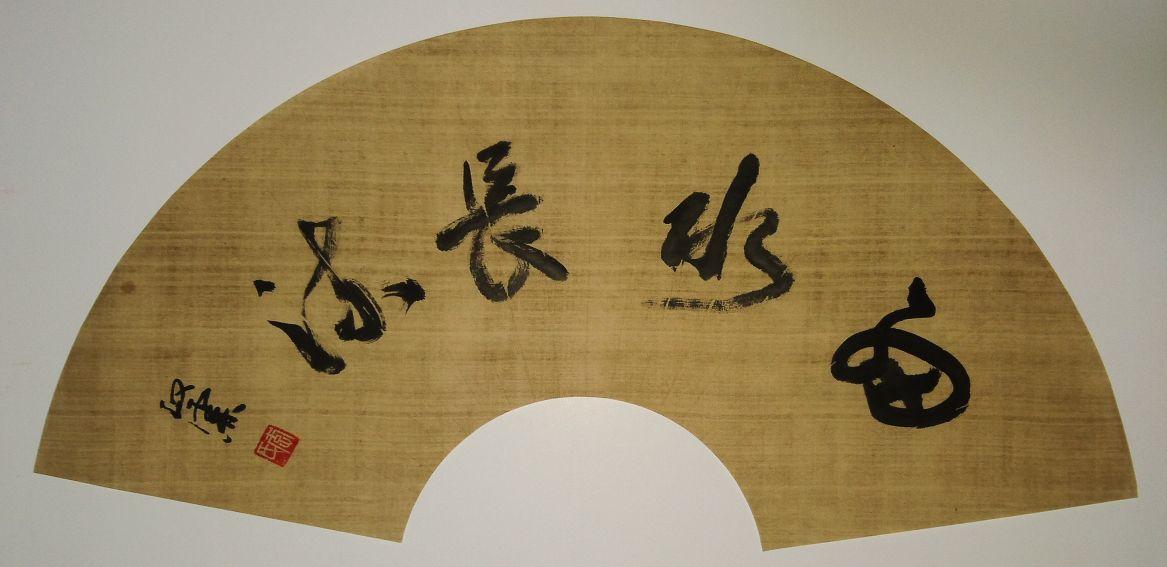 細水長流